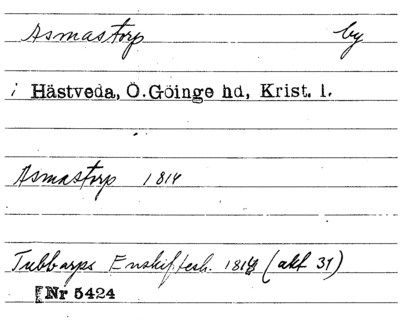 Asmastorp by
i Hästveda, Ö.Göinge hd, Krist. l.
Asmastorp 1814
Tubbarps Enskiftesh. 1814 (akt 31)
Nr 5424